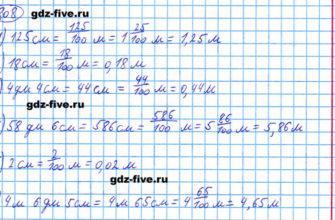 808 gdz-five.ru
) 125 см = 125/100 м = 1 25/100 м = 1,25 м
gdz-five.ru
) 18 см = 18/100 м = 0,18 м
) 4 дм 4 см = 44 см = 44/100 м = 0,44 м
gdz-five.ru
) 58 дм 6 см = 586 см = 586/100 м = 5 86/100 м = 5,86 м
gdz-five.ru
) 2 см = 2/100 м = 0,02 м
gdz-five.ru
) 4 м 6 дм 5 см = 4 м 65 см = 4 65/100 м = 4,65 м